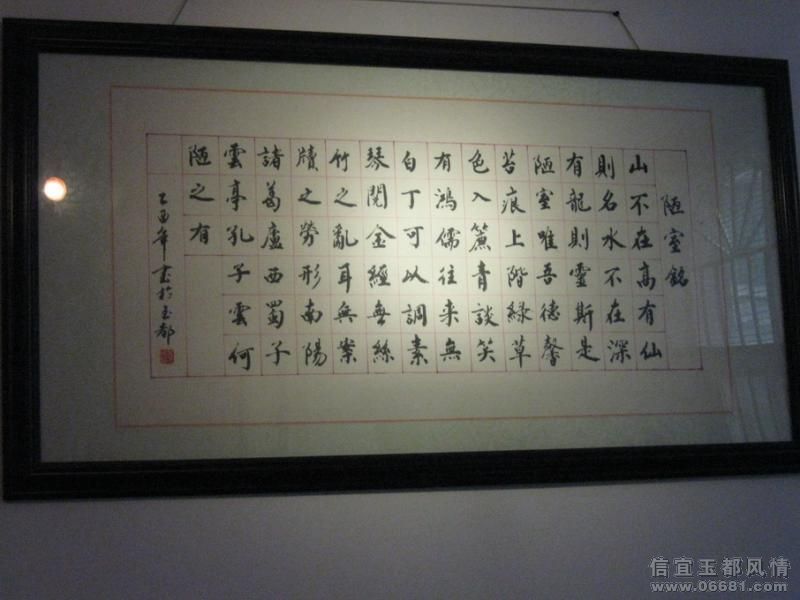 陋室銘
山不在高有仙
則名水不在深
有龍則靈斯是
陋室唯吾德馨
苔痕上階緑草
色入簾青談笑
有鴻儒往来無
白丁可以調素
琴閱金經無絲
竹之亂耳無案
牘之勞形南陽
諸葛廬西蜀子
雲亭孔子雲何
陋之有
乙酉年書於玉都
信宜玉都风情
www.06681.com